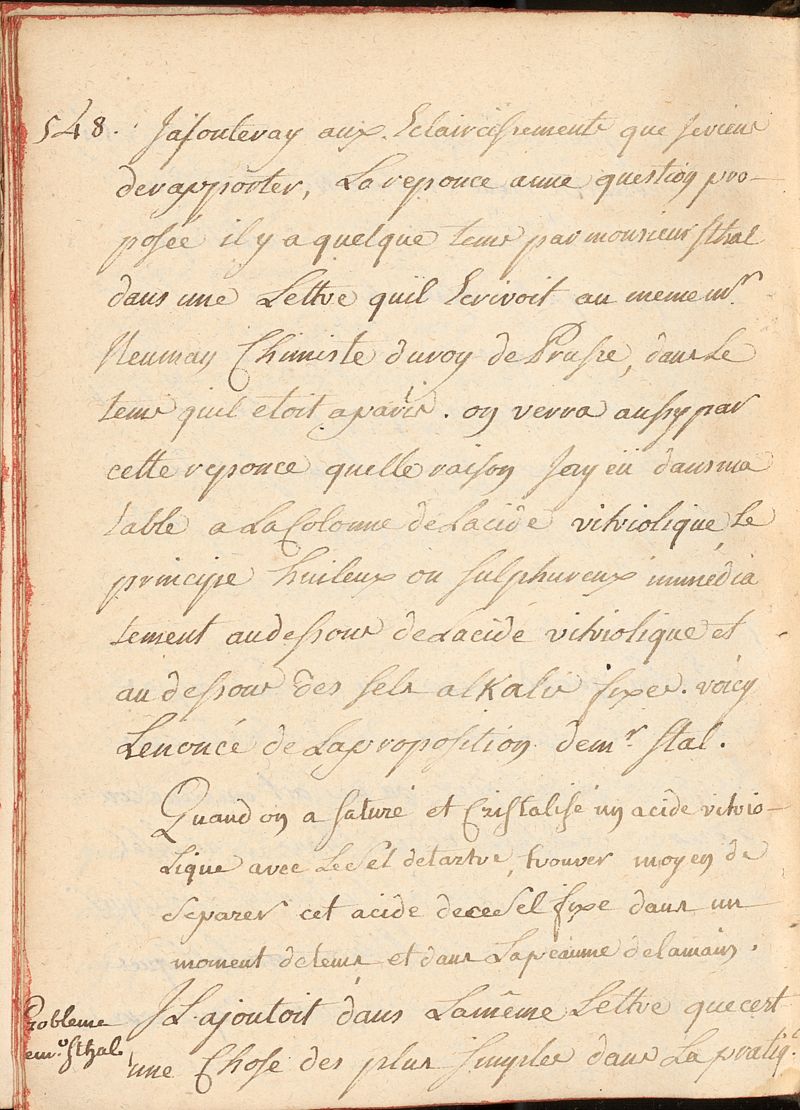 548. Jajouteray aux Eclaircissements que je viens
de rapporter, La reponce a une question pro-
posée il y a quelque tems par monsieur Sthal
dans une Lettre quil Ecrivoit au meme mr.
Neuman Chimiste du roy de Prusse, dans Le
tems quil etoit a paris. on verra aussy par
cette reponce quelle raison Jay eü dans ma
table a La Colonne de Lacide vitriolique, Le
principe huileux ou sulphureux immédia
tement au dessous de Lacide vitriolique et
au dessous des sels alkalis fixes. voicy
Lenoncé de La proposition de mr. Stal.
Quand on a saturé et Cristalisé un acide vitrio-
Lique avec Le Sel de tartre, trouver moyen de
Separer cet acide de ce Sel fixe dans un
moment de tems et dans La peaume de la main.
Probleme
de mr. Sthal
JL ajoutoit dans La même Lettre que cest
une Chose des plus simples dans La pratiq.e